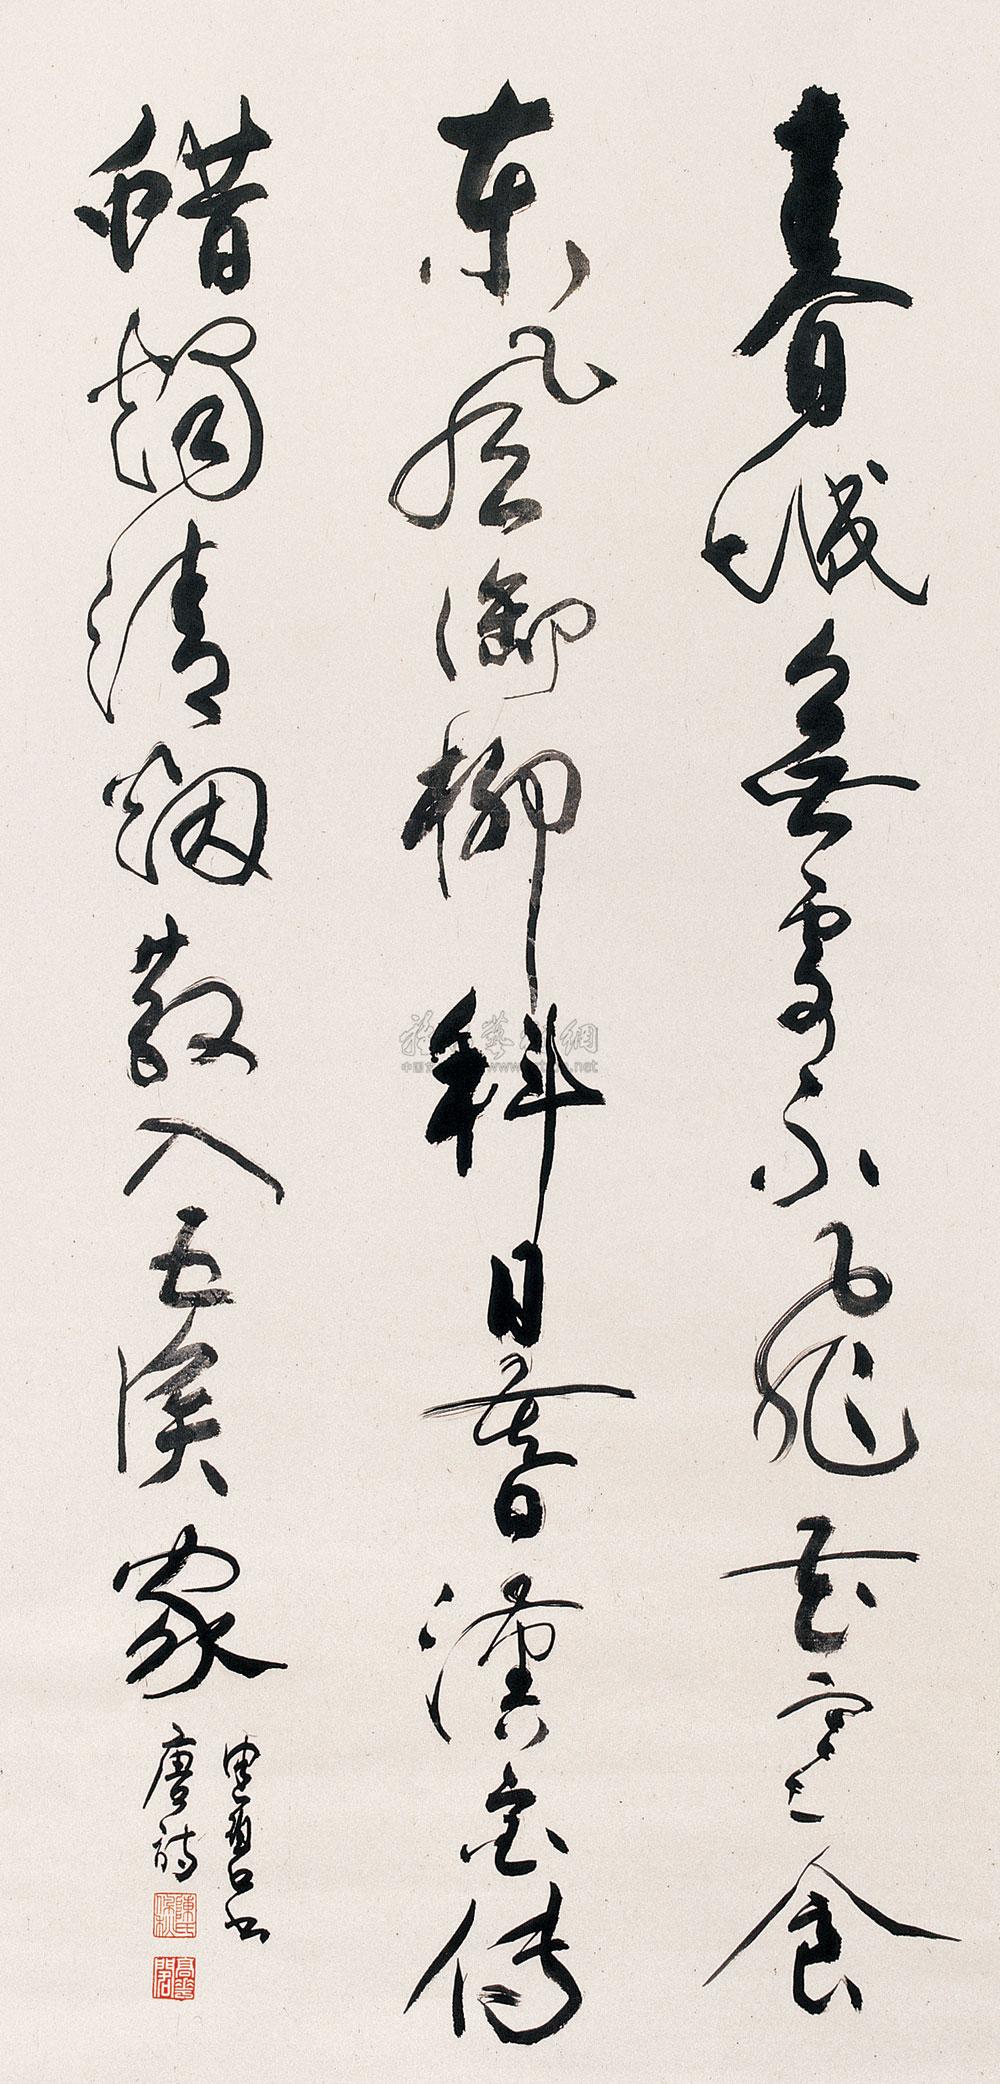 春城無處不飛花寒食
東風御柳斜日暮漢宮傳
蠟燭清烟散入五侯家
建碧書
唐詩